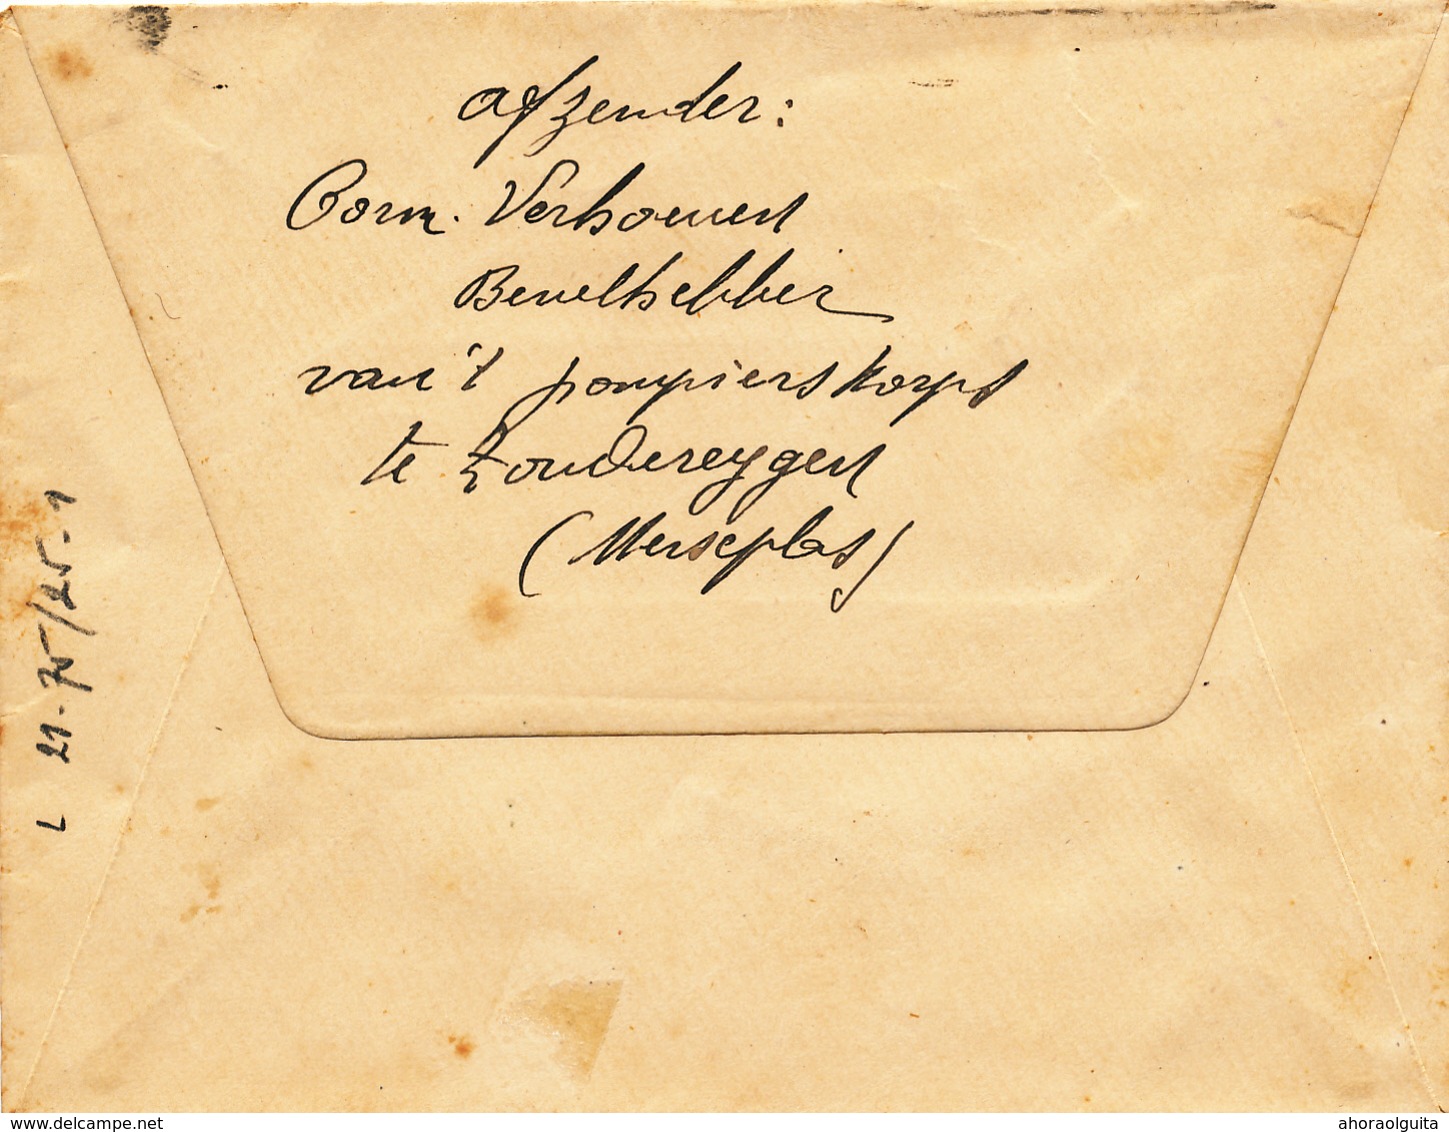 afzender:
Corn. Verhoeven
Bevelhebber
van 't pompierskorps
te Zondereygen
(Merxplas)
L 21-75/25-1
www.delcampe.net
ahoraolguita